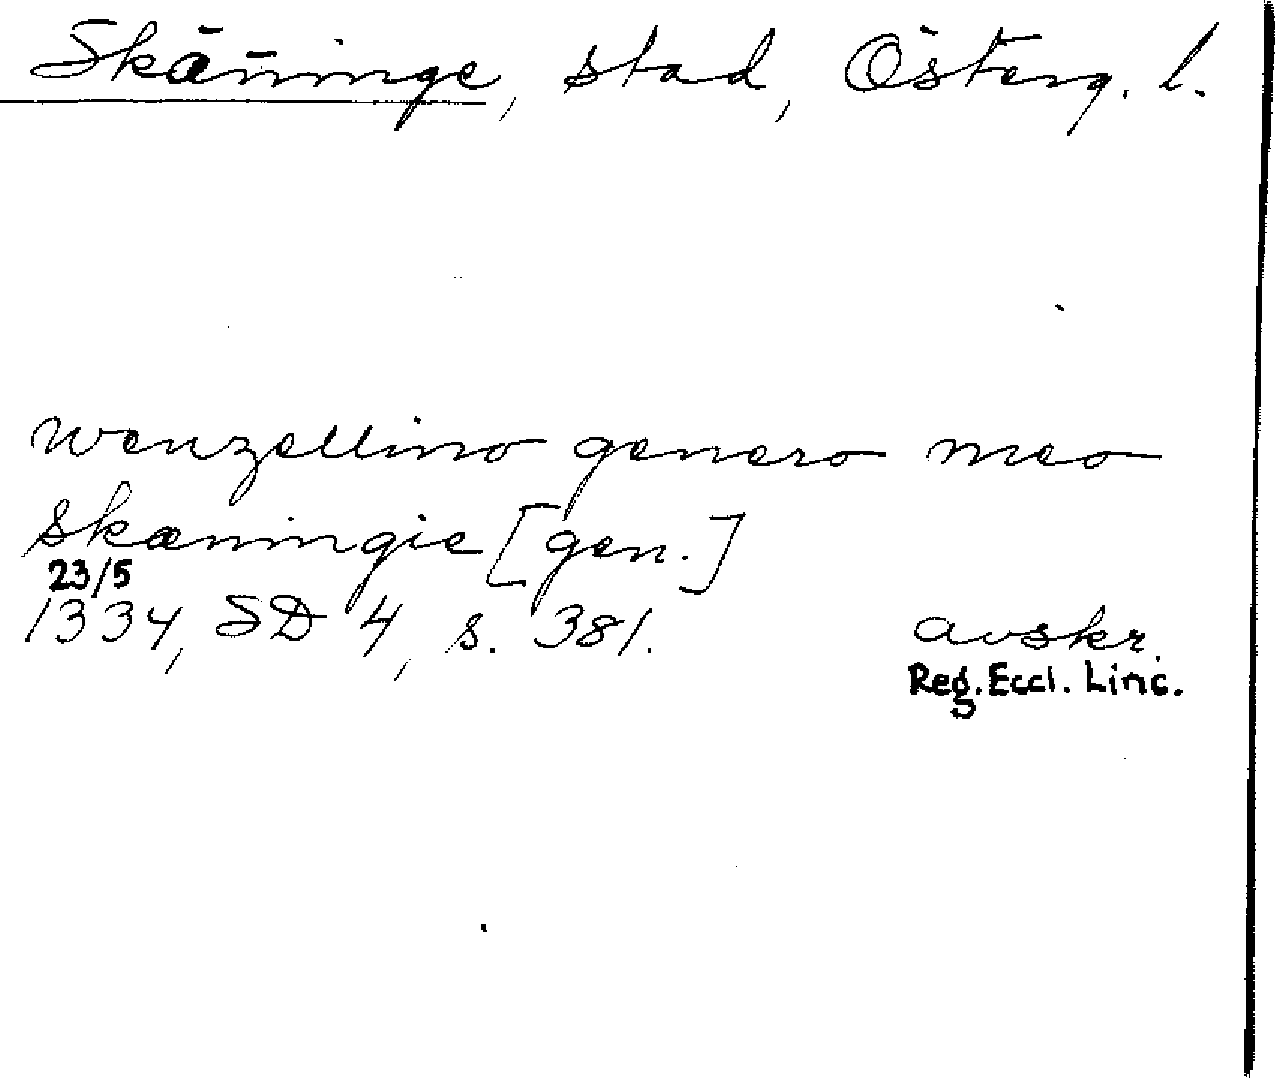 Skänninge, stad, Österg. l.
Wenzellino genero meo
skænningie [gen.]
23/5
1334, SD 4, s. 381. avskr.
Reg. Eccl. Linc.